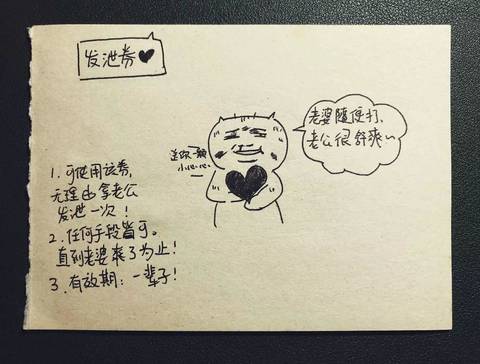 发泄券♥
老婆随便打,
老公很舒爽~
送你一颗
小心心~
1. 可使用该券,
无理由拿老公
发泄一次!
2. 任何手段皆可。
直到老婆爽了为止!
3. 有效期:一辈子!